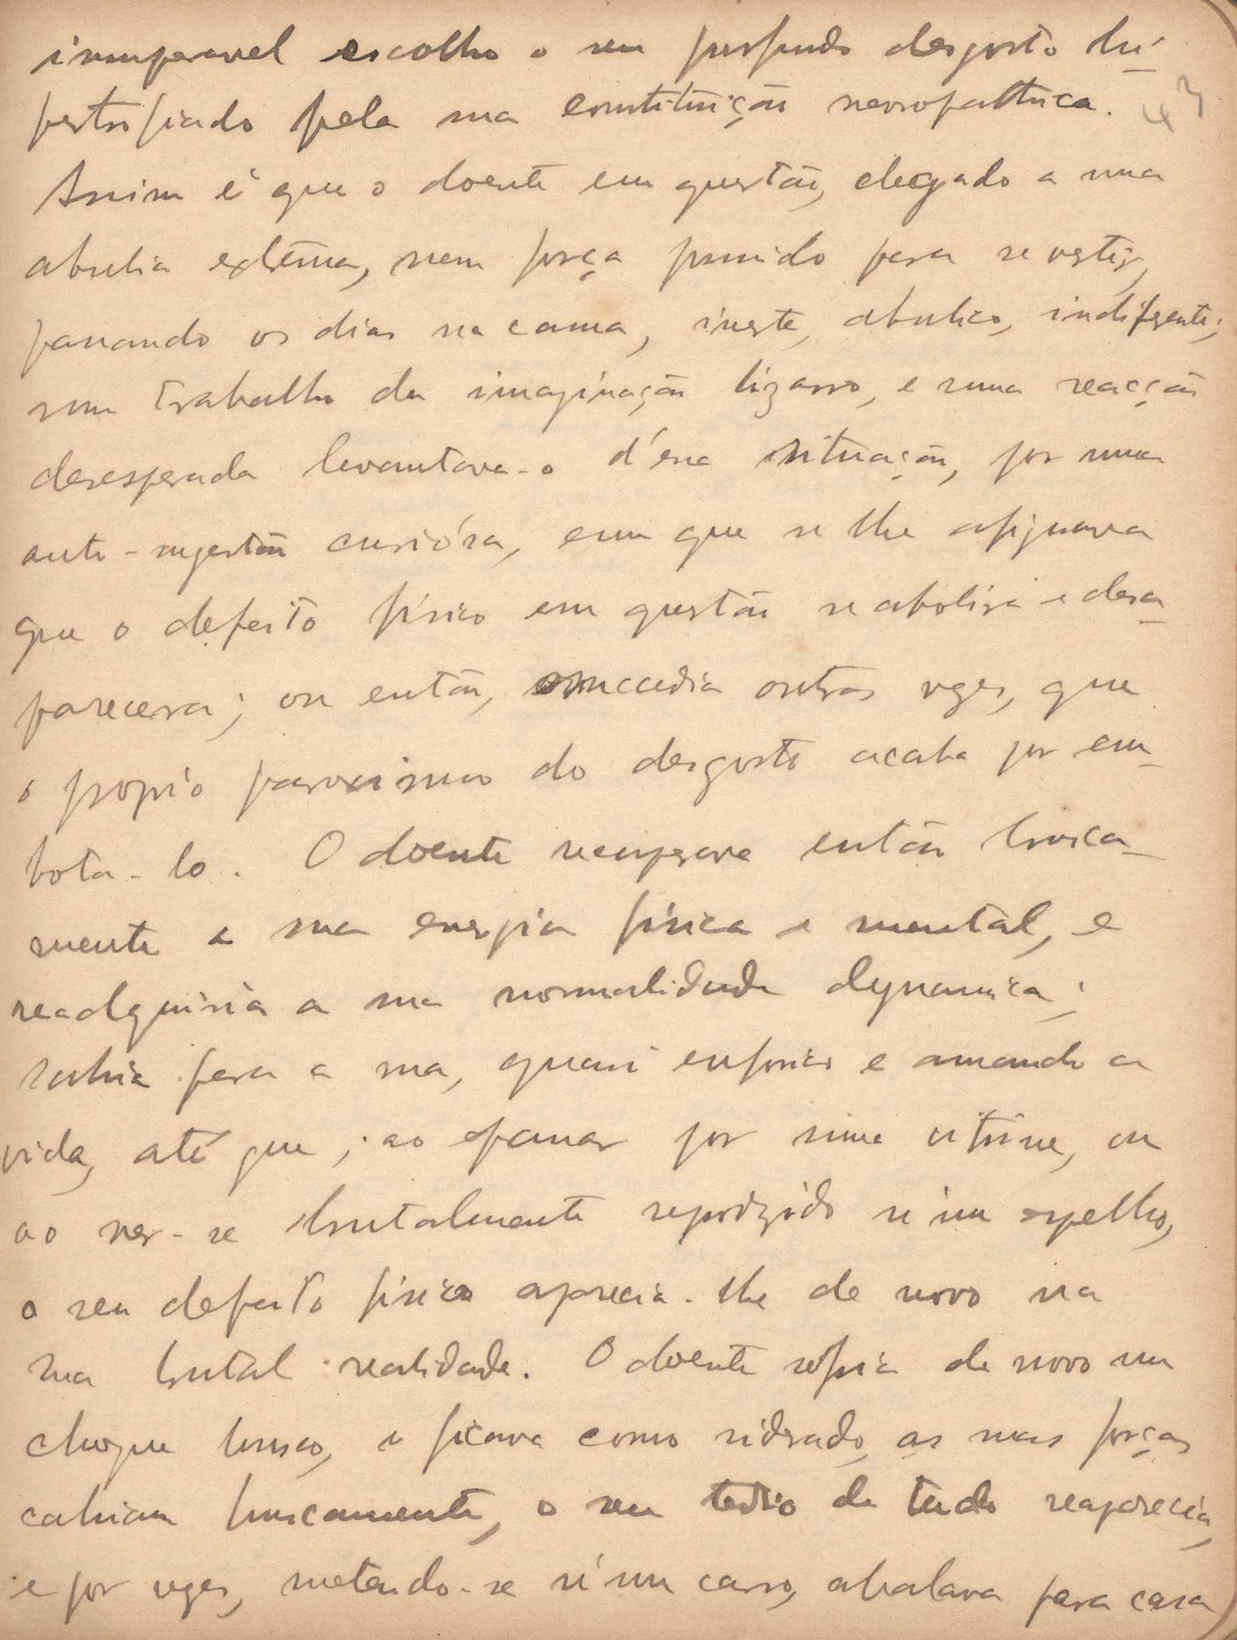 insuperavel escolho o seu profundo desgosto hi-
pertrofiado pela sua constituição nevropathica.
43
Assim é que o doente em questão, chegado a uma
abulia extrema, nem força para se vestir,
passando os dias na cama, inerte, abulico, indiferente;
num trabalho de imaginação bizarro, e numa reacção
desesperada levantava-o d'essa situação, por uma
auto-sugestão curiósa, em que se lhe afigurava
que o defeito físico em questão se abolira e desa-
parecera; ou então, succedia outras vezes, que
o proprio paroxismo do desgosto acaba por em-
bota-lo. O doente recuperava então brusca-
mente a sua energia física e mental, e
readquiria a sua normalidade dynamica;
sahia para a rua, quasi euforico e amando a
vida, até que, ao passar por uma vitrine, ou
ao ver-se brutalmente reproduzido n'um espelho,
o seu defeito físico aparecia-lhe de novo na
sua brutal realidade. O doente sofria de novo um
choque brusco, e ficava como sidrado, as suas forças
cahiam bruscamente, o seu tedio de tudo reaparecia,
e por vezes, metendo-se n'um carro, abalava para casa